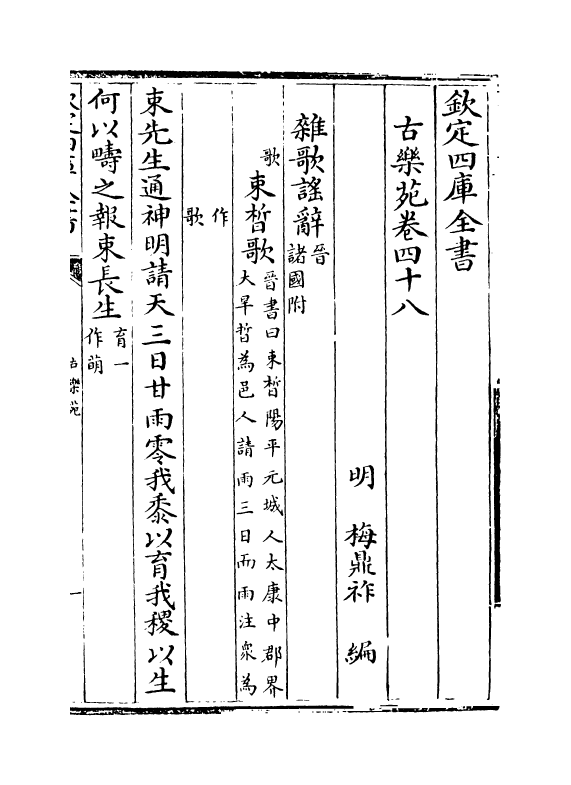 欽定四庫全書
古樂苑卷四十八
明 梅鼎祚 編
雜歌謠辭晉
諸國附
歌
束晳歌晉書曰束晳陽平元城人太康中郡界
大旱晳為邑人請雨三日而雨注衆為
作
歌
束先生通神明請天三日甘雨零我黍以育我稷以生
何以疇之報束長生育一
作萌
古樂苑
一